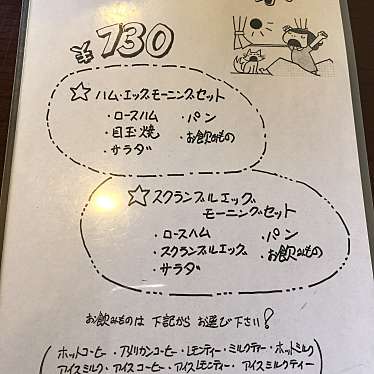 ¥730
☆ ハム・エッグモーニングセット
・ロースハム ・パン
・目玉焼 ・お飲みもの
・サラダ
☆ スクランブルエッグ
モーニングセット
・ロースハム ・パン
・スクランブルエッグ ・お飲みもの
・サラダ
お飲みものは 下記から お選び下さい!
(ホットコーヒー・アメリカンコーヒー・レモンティー・ミルクティー・ホットミルク
アイスミルク・アイスコーヒー・アイスレモンティー・アイスミルクティー)